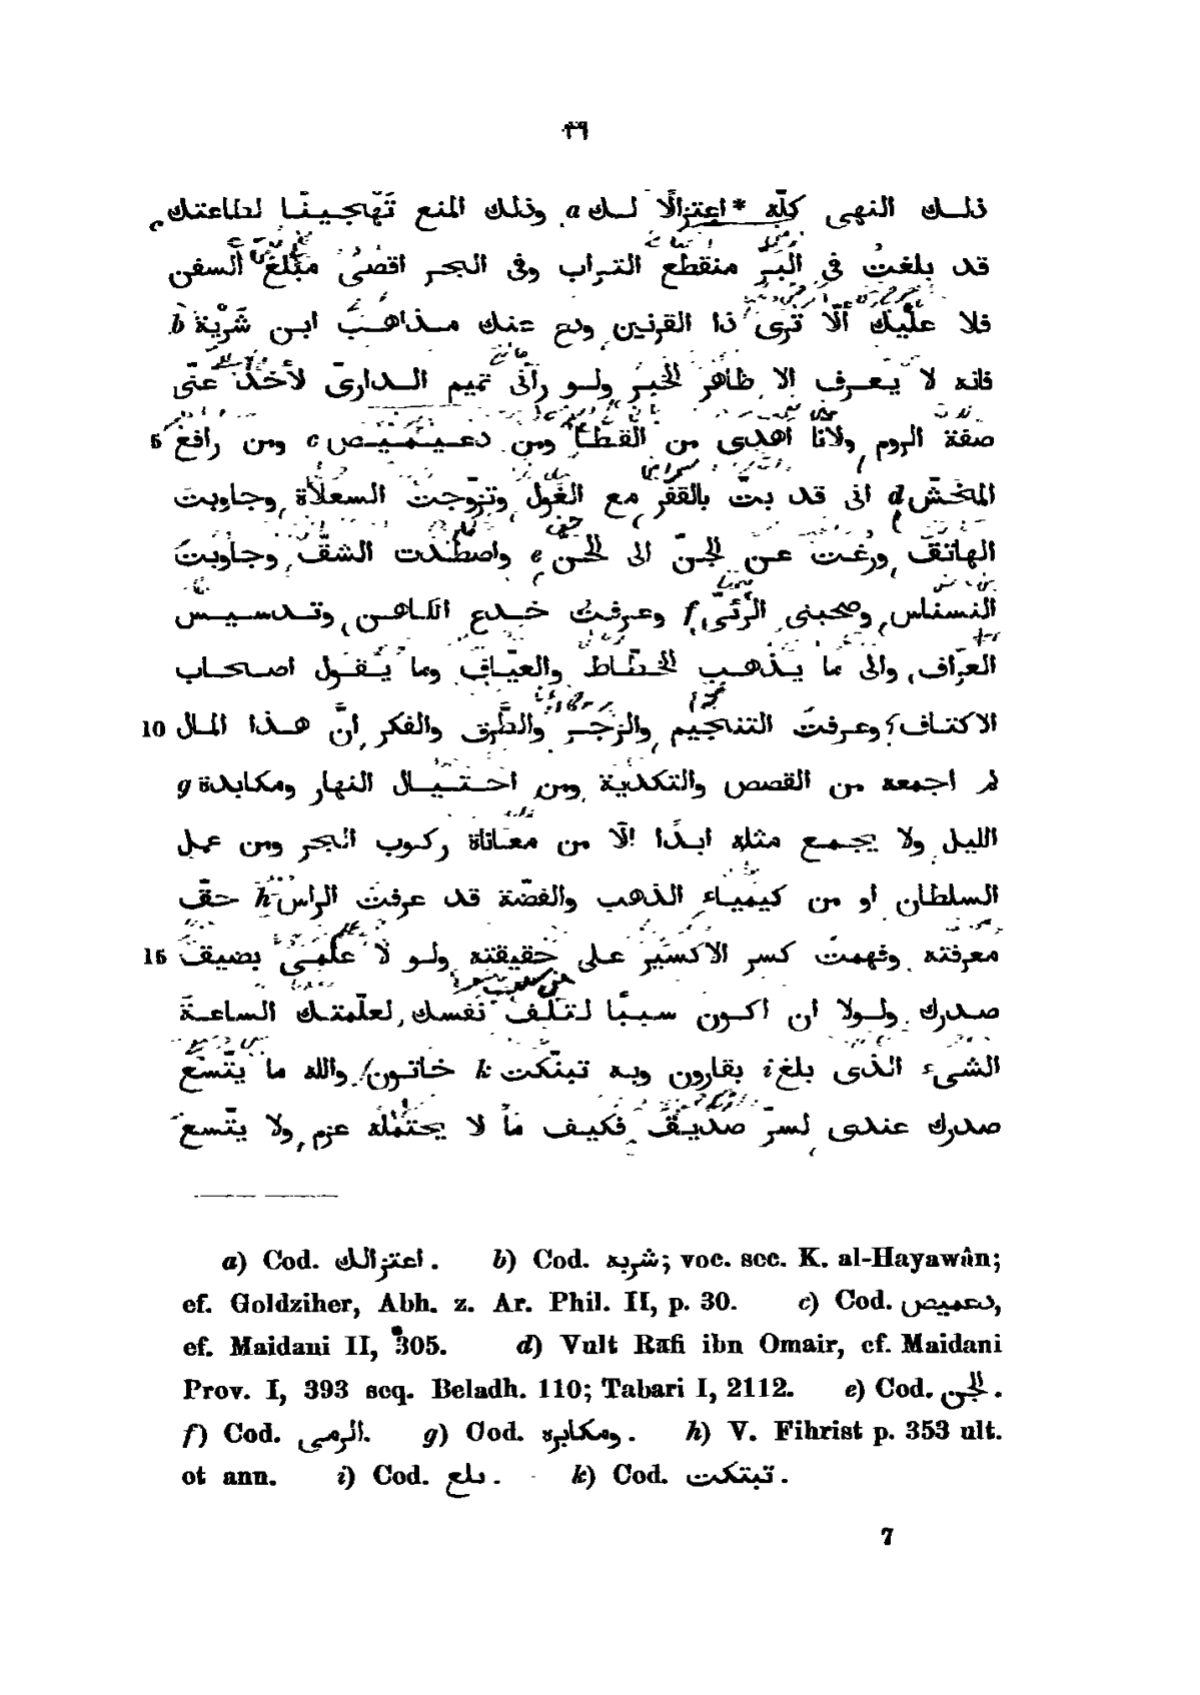 ٤٩
ذلك النهى كلّه * اعتزالًا لك a وذلك المنع تَهْجينًا لطاعتك
قد بلغتُ فى البَرّ منقطع التراب وفى البحر اقصى مَبْلَغ السفن
فلا عليك ألّا تَرَى ذا القرنين ودع عنك مذاهبَ ابن شَرْيَة b
فانه لا يعرف الا ظاهر الخبر ولو رآنى تميم الدارىّ لأخذ عنّى
5 صفة الروم ولأنا أهدى من القطا ومن دعيميص c ومن رافع
المخشّ d انى قد بتّ بالقفر مع الغول وتزوجتُ السعلاة وجاوبت
الهاتف ورغتُ عن الجنّ الى الحنّ e واصطدت الشقّ وجاوبتُ
النسناس وصحبنى الرَّئىّ f وعرفتُ خدع الكاهن وتدسيس
العرّاف والى ما يذهب الخطّاط والعيّاف وما يقول اصحاب
10 الاكتاف وعرفت التنجيم والزجر والطرق والفكر انّ هذا المال
لم اجمعه من القصص والتكدية ومن احتيال النهار ومكابدة g
الليل ولا يجمع مثله ابدًا الّا من معاناة ركوب البحر ومن عمل
السلطان او من كيمياء الذهب والفضّة قد عرفت الراس h حقّ
15 معرفته وفهمت كسر الاكسير على حقيقته ولو لا علمى بضيق
صدرك ولولا ان اكون سببًا لتلف نفسك لعلّمتك الساعة
الشىء الذى بلغ i بقارون وبه تبنّكت k خاتون والله ما يتّسع
صدرك عندى لسرّ صديق فكيف ما لا يحتمله عزم ولا يتّسع
a) Cod. اعتزالك. b) Cod. شربه; voc. sec. K. al-Hayawân;
cf. Goldziher, Abh. z. Ar. Phil. II, p. 30. c) Cod. دعميص,
cf. Maidani II, 305. d) Vult Rafi ibn Omair, cf. Maidani
Prov. I, 393 seq. Beladh. 110; Tabari I, 2112. e) Cod. الجن.
f) Cod. الرمى. g) Cod. ومكابره. h) V. Fihrist p. 353 ult.
et ann. i) Cod. بلع. k) Cod. تبتكت.
7